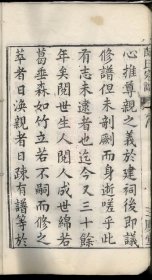 心推尊親之義於建祠後即議
修譜但未剞劂而身逝嗟乎此
有志未遂者也迄今又三十餘
年矣閱世生人閱人成世綿若
葛虆森如竹立若不嗣而修之
萃者日渙親者日疎有譜等於